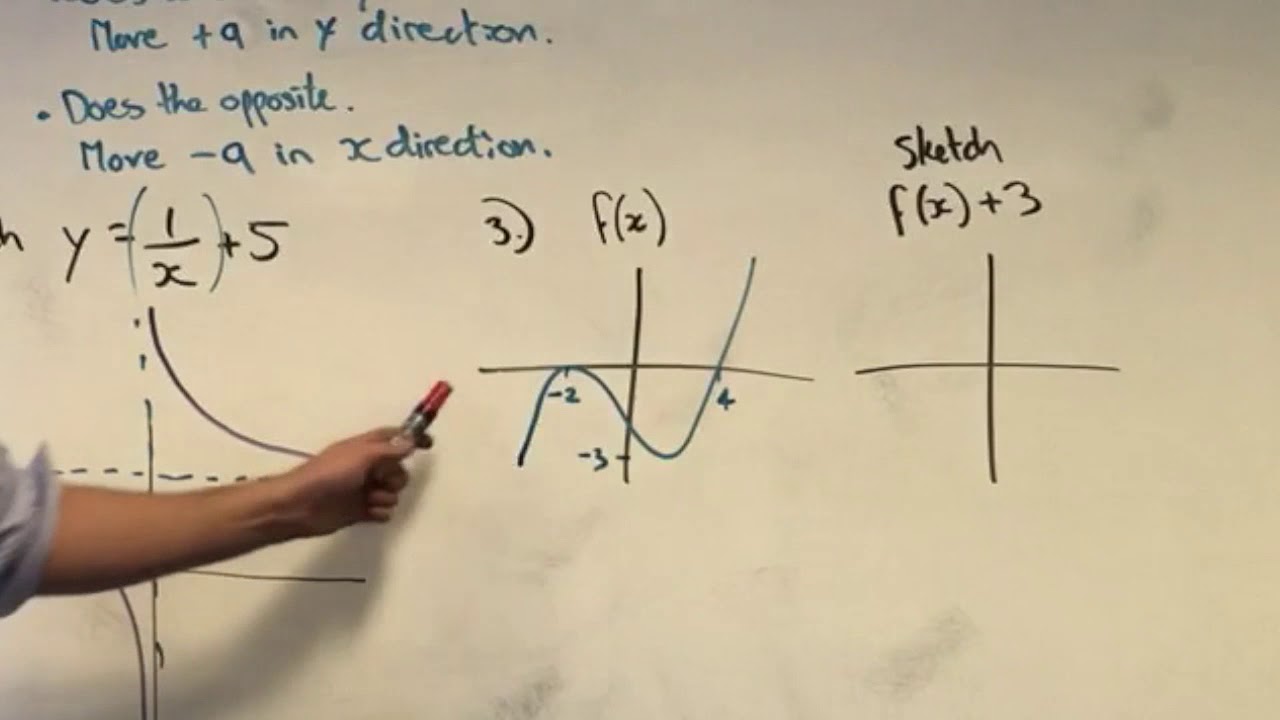 Move +a in y direction.
• Does the opposite.
Move -a in x direction.
y = (1/x) + 5
3.) f(x)
-2
4
-3
Sketch
f(x) + 3